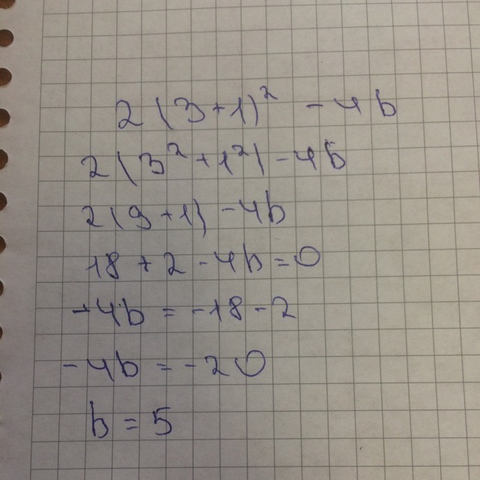 2(3+1)² - 4b
2(3²+1²) - 4b
2(9+1) - 4b
18+2-4b=0
-4b=-18-2
-4b=-20
b=5